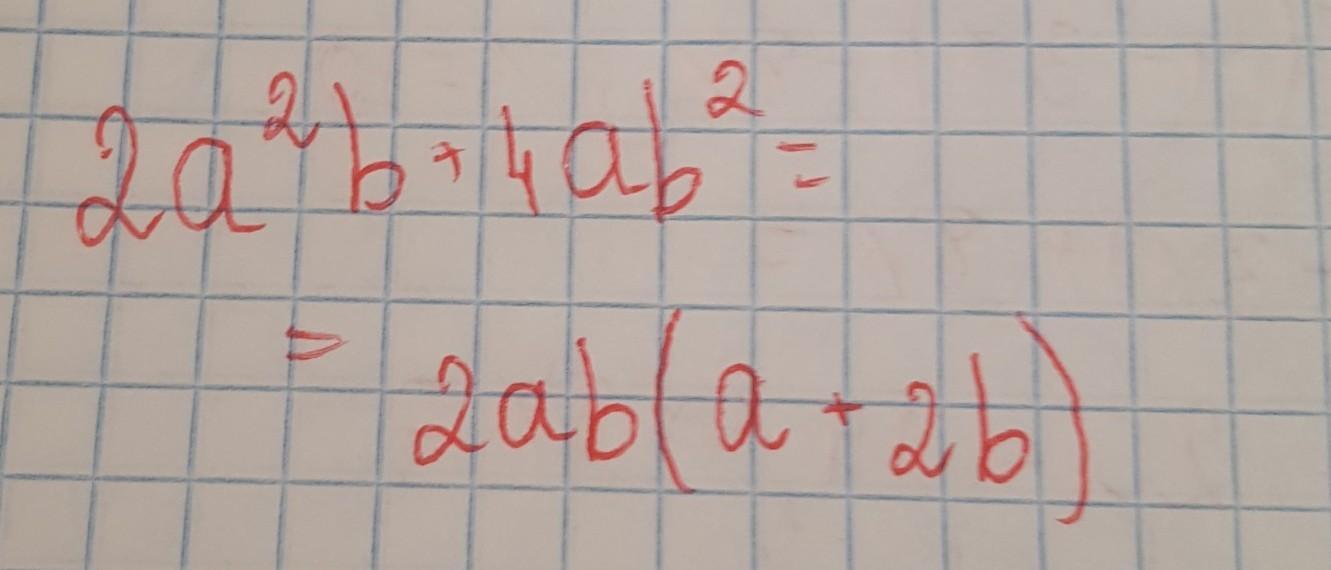 2a²b + 4ab² =
= 2ab(a + 2b)